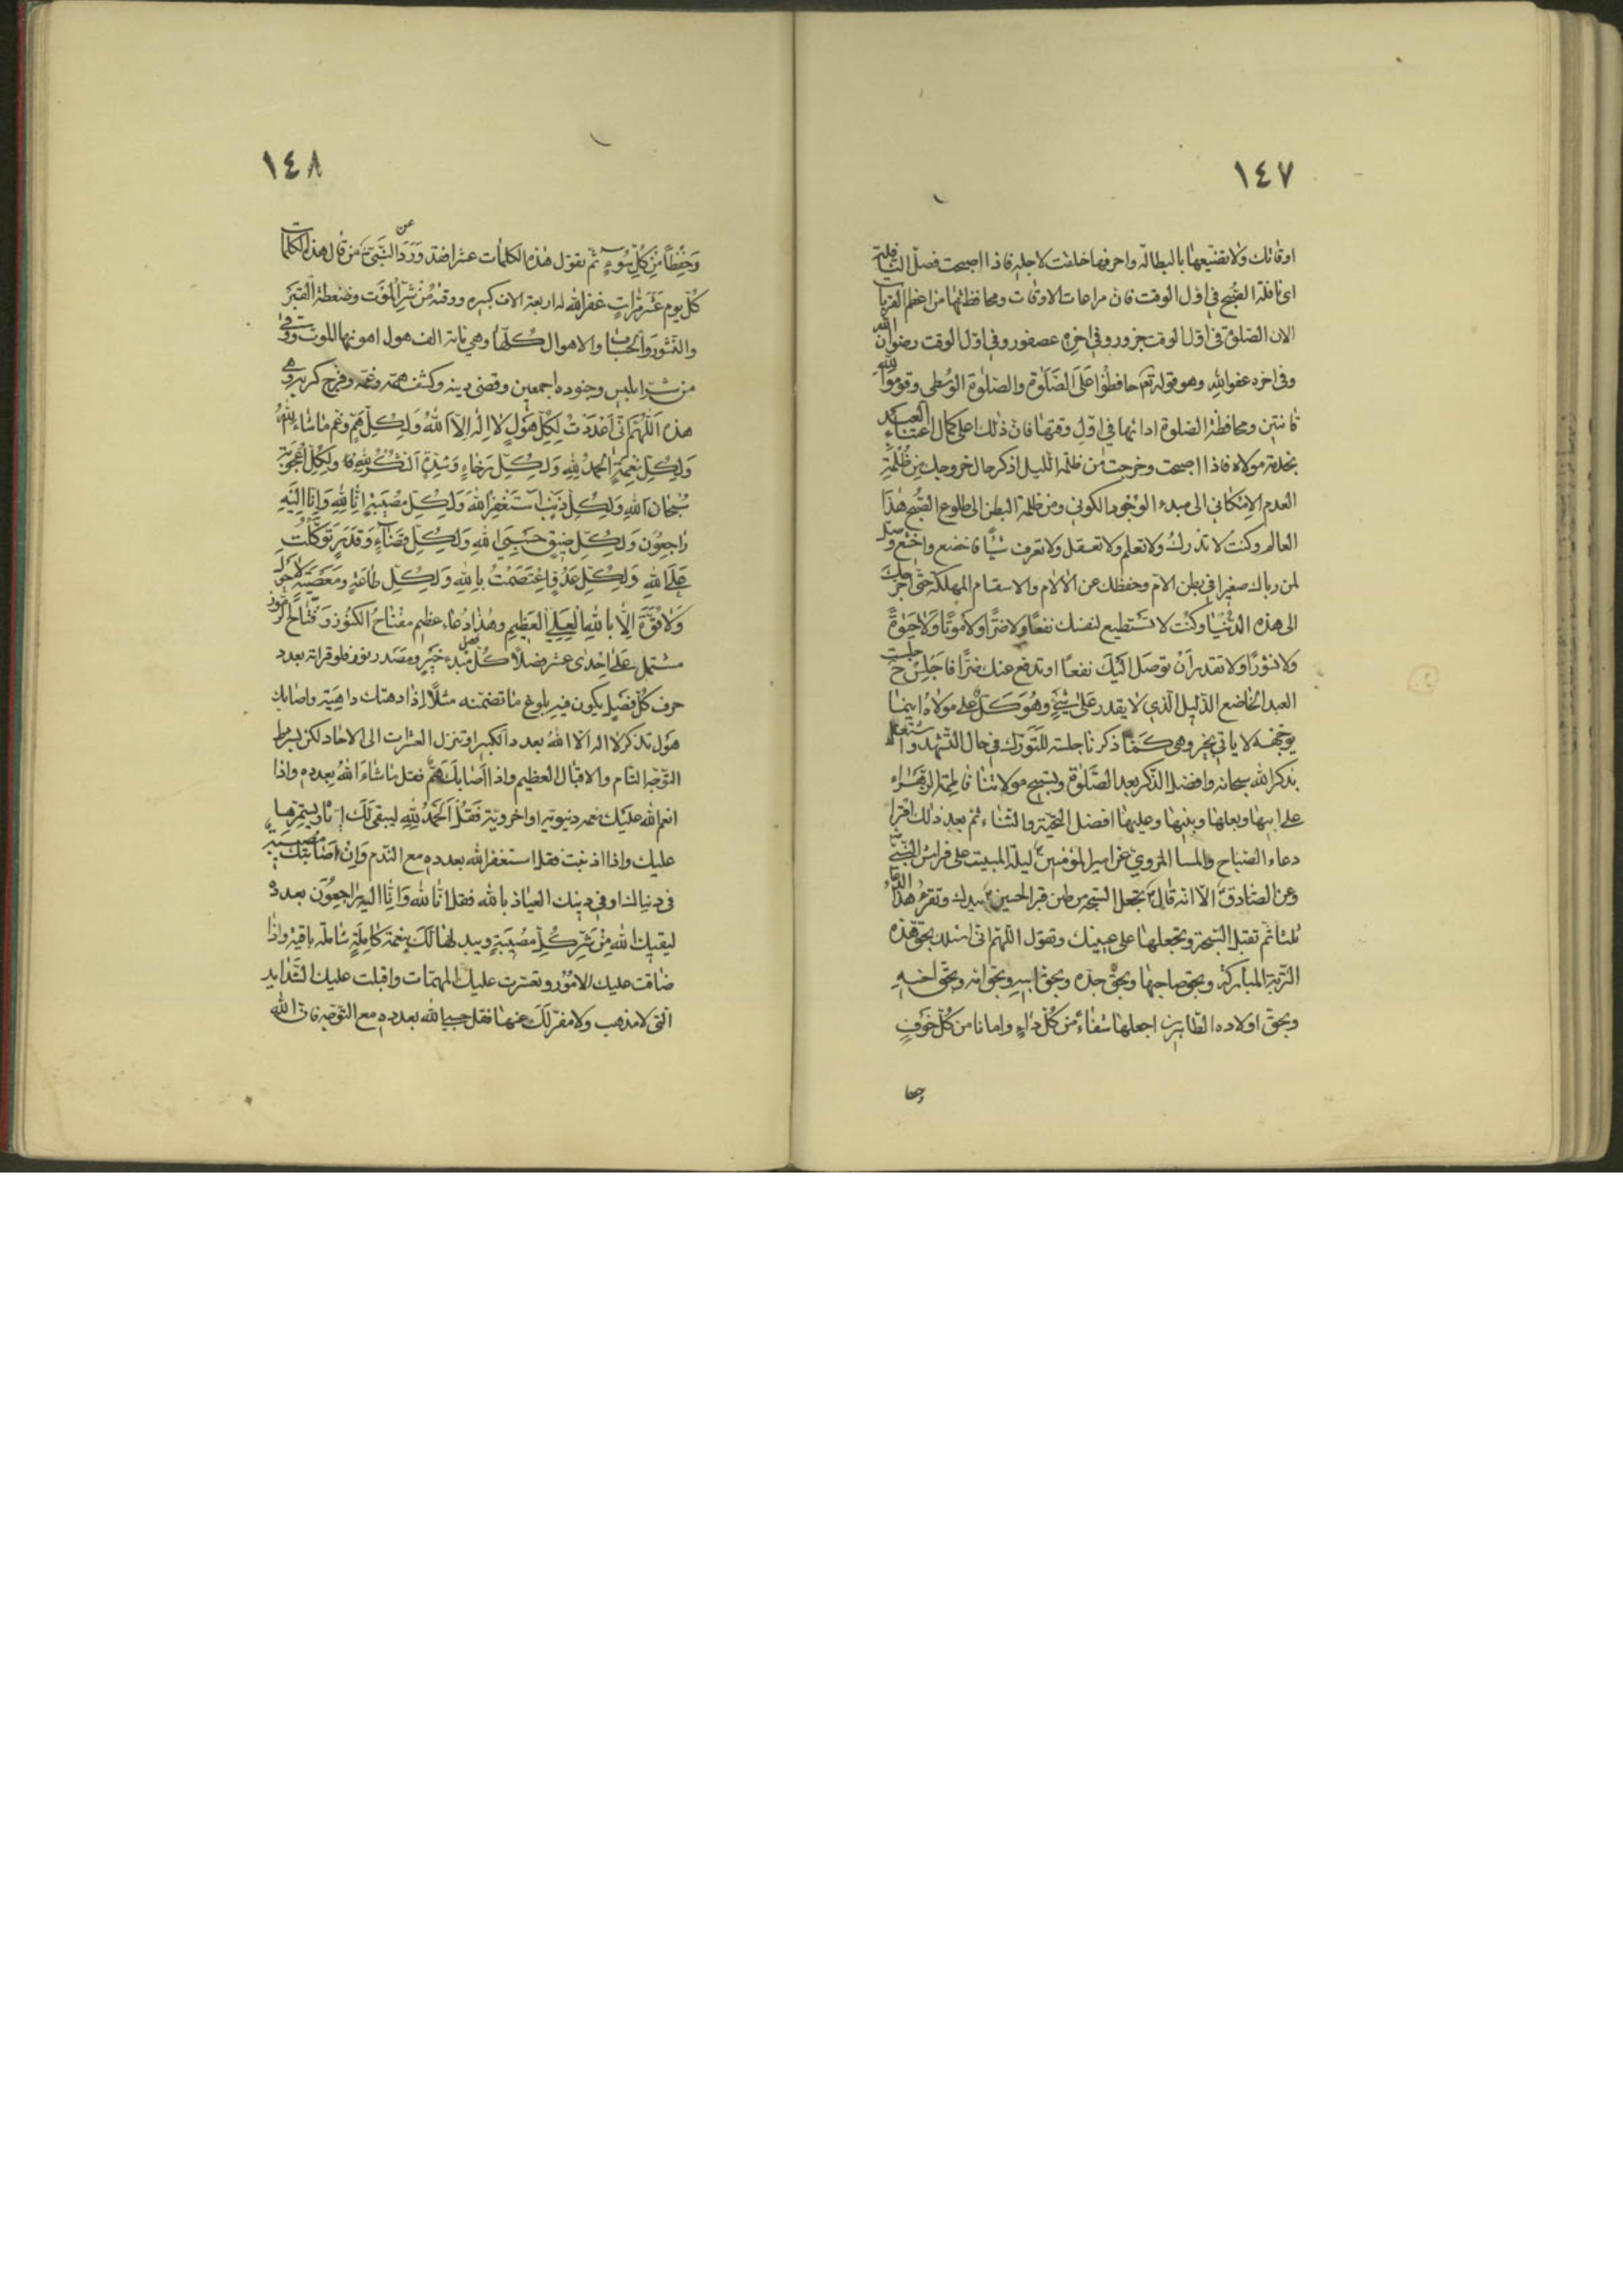 ١٤٧
اوقاتك ولا تضيعها بالبطالة واصرفها فيما خلقت لاجله فاذا اصبحت فصل النافلة
اى نافلة الصبح فى اول الوقت فان مراعات الاوقات ومحافظتها من اعظم القربات
الان الصلوة فى اول الوقت جزور وفى اخره عصفور وفى اول الوقت رضوان الله
وفى اخره عفو الله وهو قوله تع حافظوا على الصلوة والصلوة الوسطى وقوموا لله
قانتين ومحافظة الصلوة ادائها فى اول وقتها فان ذلك اعلى كمال اعتناء العبد
بخدمة مولاه فاذا اصبحت وخرجت من ظلمة الليل اذكر حال خروجك من ظلمة
العدم الامكانى الى مبدء الوجود الكونى ومن ظلمة البطن الى طلوع الصبح هذا
العالم وكنت لا تدرك ولا تعلم ولا تعقل ولا تعرف شيئا فاخضع واخشع وصل
لمن رباك صغيرا فى بطن الام وحفظك عن الالام والاسقام المهلكة حتى اخرجك
الى هذه الدنيا وكنت لا تستطيع لنفسك نفعا ولا ضرا ولا موتا ولا حيوة
ولا نشورا ولا تقدر ان توصل اليك نفعا او تدفع عنك ضرا فاجلس ح جلسة
العبد الخاضع الذليل الذى لا يقدر على شئ وهو كل على مولاه اينما
يوجهه لا يأتى بخير وهى كما ذكرنا جلسة التورك فى حال التشهد واشتغل
بذكر الله سبحانه وافضل الذكر بعد الصلوة وتسبيح مولاتنا فاطمة الزهراء
على ابيها وبعلها وبنيها وعليها افضل التحية والثناء ثم بعد ذلك اقرا
دعاء الصباح والمسا المروى عن امير المؤمنين ع ليلة المبيت على فراش النبى
وعن الصادق الا انه قال تجعل السبحة من طين قبر الحسين ع بيدك وتقرء هذا الدعا
ثلثا ثم تقبل السبحة وتجعلها على عينيك وتقول اللهم انى اسئلك بحق هذه
التربة المباركة وبحق صاحبها وبحق جده وبحق ابيه وبحق امه وبحق اخيه
وبحق اولاده الطاهرين اجعلها شفاء من كل داء وامانا من كل خوف
وحفظا
١٤٨
وحفظا من كل سوء ثم تقول هذه الكلمات عشرا فقد ورد عن النبى من قال هذه الكلمات
كل يوم عشر مرات غفر الله له اربعة الاف كبيره ووقيه من شر الموت وضغطة القبر
والنشور والحساب والاهوال كلها وهى مائة الف هول اهونها الموت ووقى
من شر ابليس وجنوده اجمعين وقضى دينه وكشف همه وغمه وفرج كربه وهى
هذه اللهم انى اعددت لكل هول لا اله الا الله ولكل هم وغم ما شاء الله
ولكل نعمة الحمد لله ولكل رخاء وشدة الشكر لله ولكل اعجوبة
سبحان الله ولكل ذنب استغفر الله ولكل مصيبة انا لله وانا اليه
راجعون ولكل ضيق حسبى الله ولكل قضاء وقدر توكلت
على الله ولكل عدو اعتصمت بالله ولكل طاعة ومعصية لا حول
ولا قوة الا بالله العلى العظيم وهذا دعاء عظيم مفتاح الكنوز وفتاح الرموز
مشتمل على احدى عشر فصلا كل فصل مبدء خير ومصدر نور فلو قراته بعدد
حرف كل فصل يكون فيه بلوغ ما تضمنه مثلا اذا دهتك داهية واصابك
هول تذكر لا اله الا الله بعدد الكبير او تنزل العشرات الى الاحاد لكن بشرط
التوجه التام والاقبال العظيم واذا اصابك هم فقل ما شاء الله بعدده واذا
انعم الله عليك نعمه دنيوية او اخروية فقل الحمد لله ليبقى لك ويستمرها
عليك واذا اذنبت فقل استغفر الله بعدده مع الندم وان اصابتك مصيبة
فى دنياك او فى دينك العياذ بالله فقل انا لله وانا اليه راجعون بعدده
ليقيك الله من شر كل مصيبة ويبدلها لك بنعمة كاملة شاملة باقية واذا
ضاقت عليك الامور وتعسرت عليك المهمات واقبلت عليك الشدايد
التى لا مذهب ولا مفر لك عنها فقل حسبى الله بعدده مع التوجه فان الله